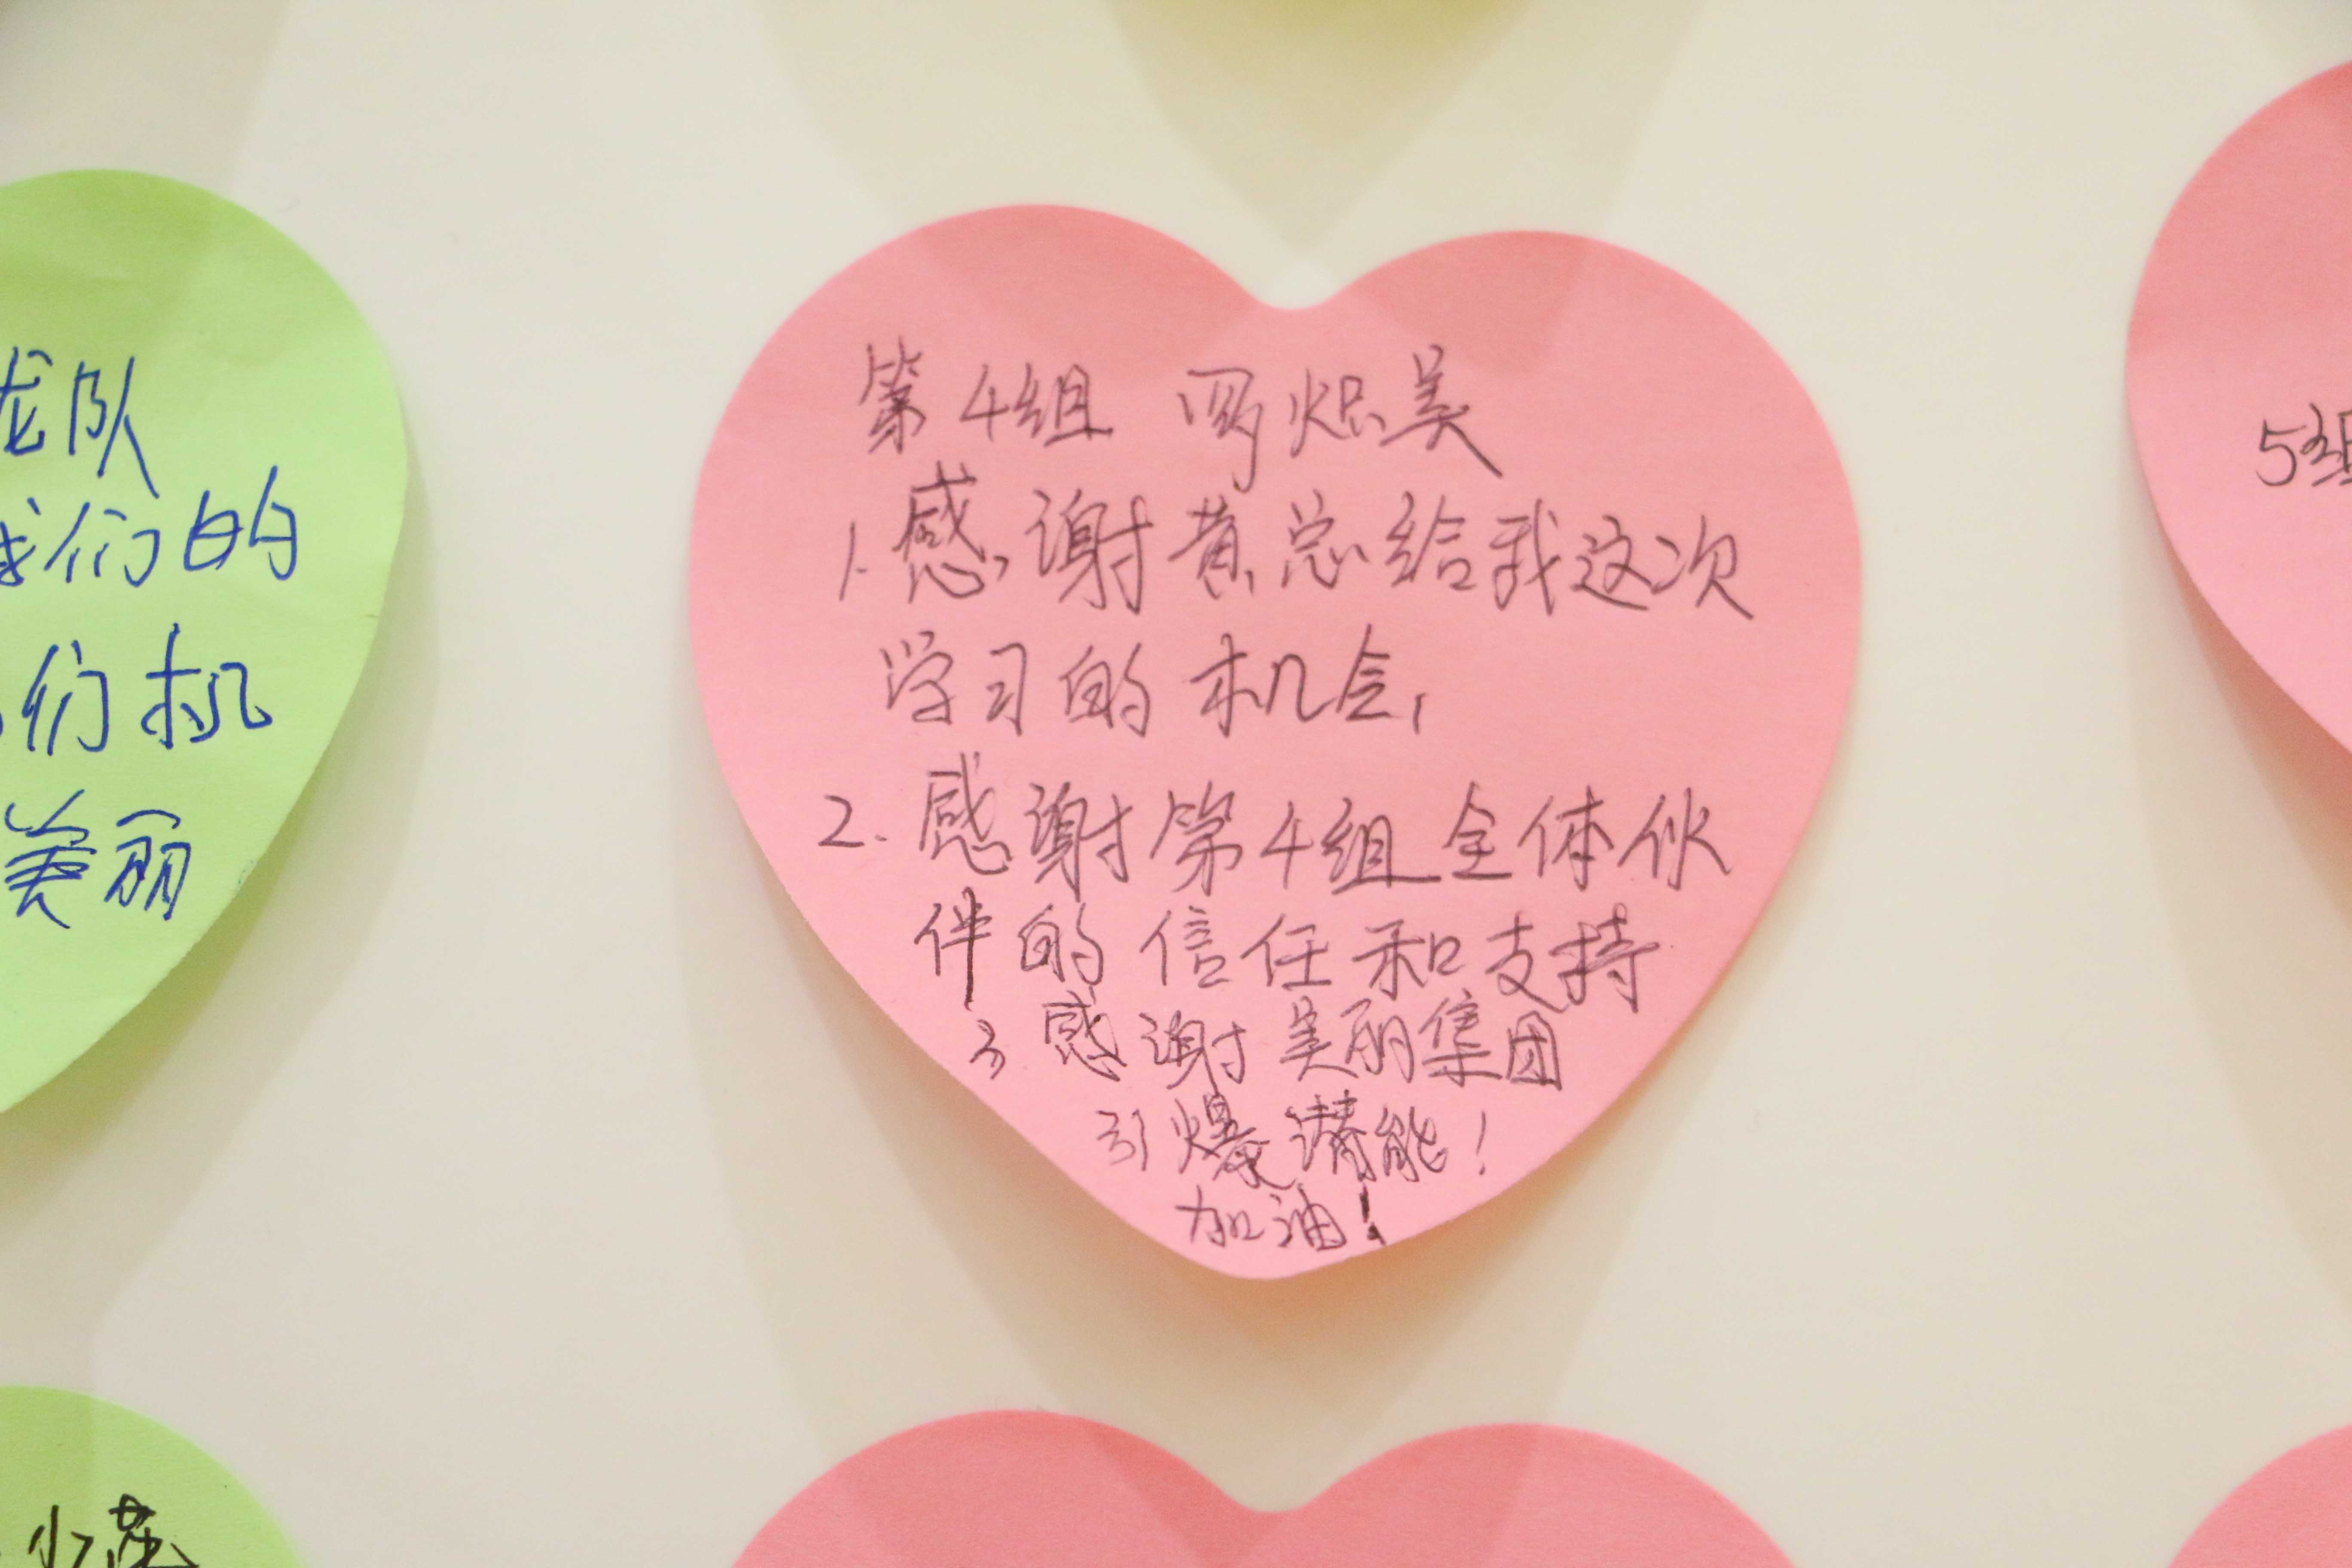 龙队
我们的
们机
美丽
第4组 罗炽美
1.感谢黄总给我这次
学习的机会,
2.感谢第4组全体伙
伴的信任和支持
3 感谢美丽集团
引爆潜能!
加油!
5组
小燕